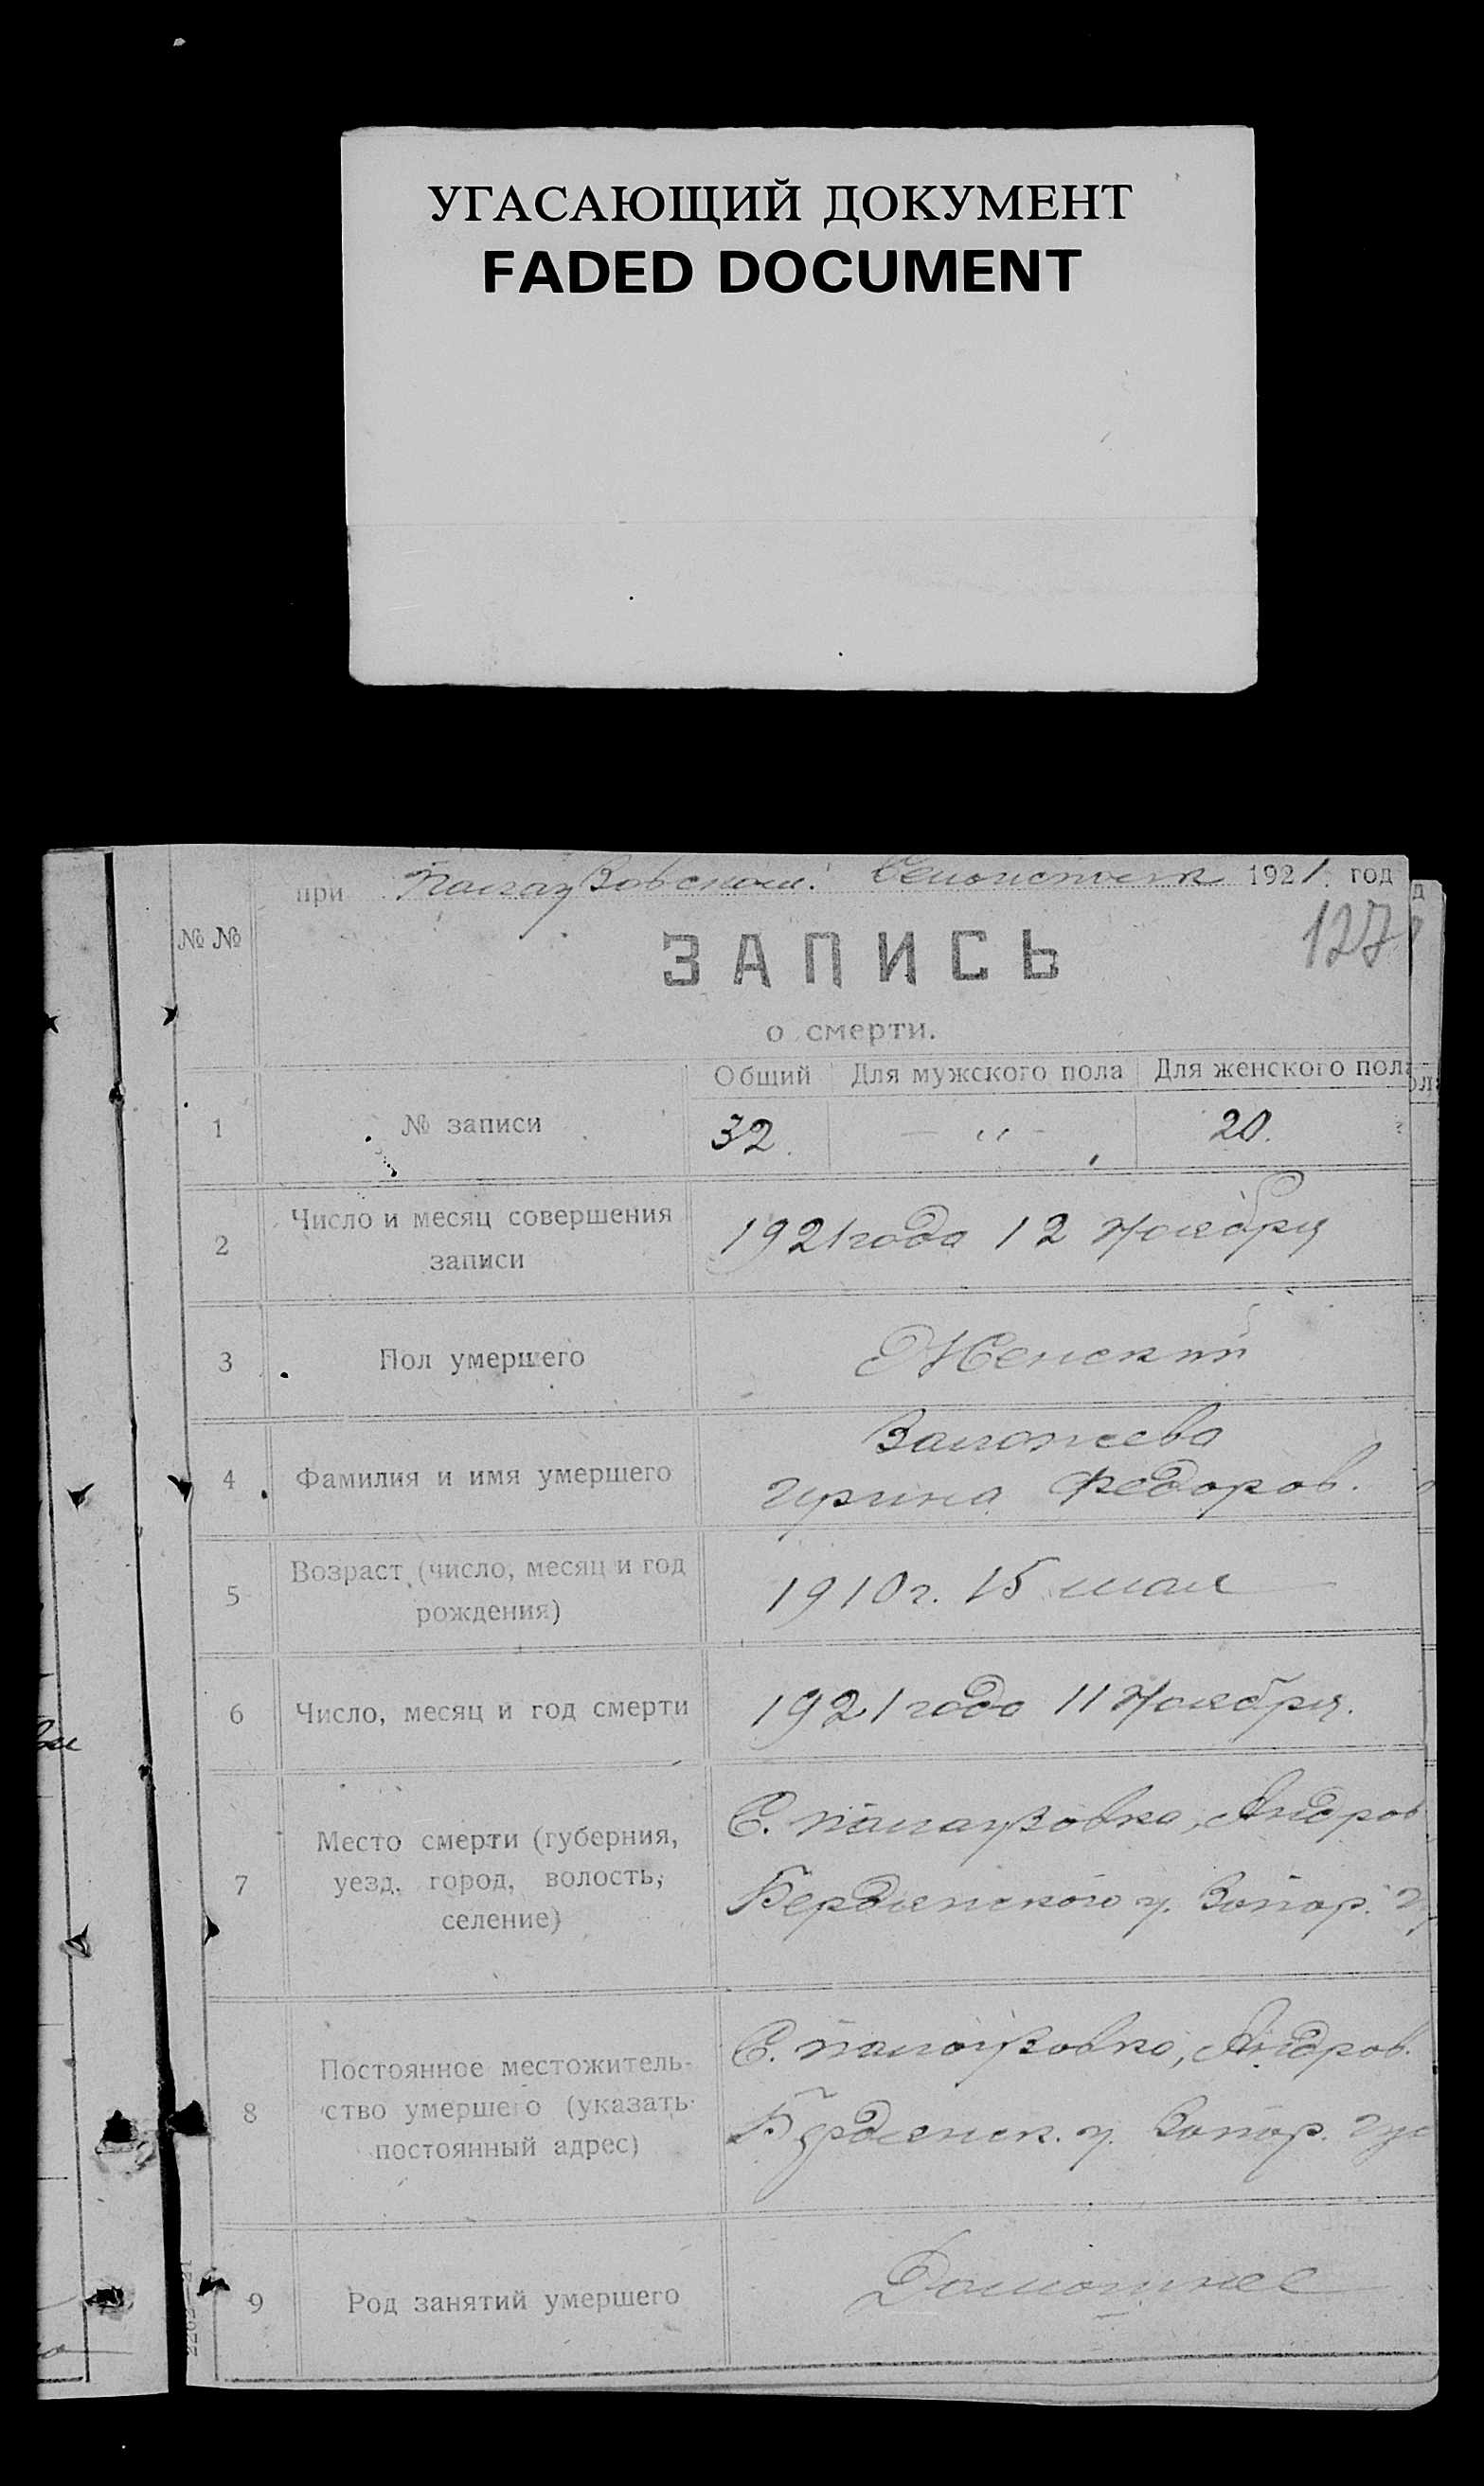 УГАСАЮЩИЙ ДОКУМЕНТ
FADED DOCUMENT
при 1921. год
№ №
127
ЗАПИСЬ
о смерти.
Общий Для мужского пола Для женского пола
1 № записи 32. — „ — 20.
2 Число и месяц совершения
записи
1921 года 12 Ноября
3 Пол умершего Женский
4 Фамилия и имя умершего
Ирина Федоров.
5 Возраст (число, месяц и год
рождения)
1910 г. 15 мая
6 Число, месяц и год смерти 1921 года 11 Ноября.
7 Место смерти (губерния,
уезд, город, волость,
селение)
С. Палаузовка, Андров
Бердянского у. Запор. г
8 Постоянное местожитель-
ство умершего (указать
постоянный адрес)
С. Палаузовка, Андров.
Бердянск. у. Запор. гу
9 Род занятий умершего